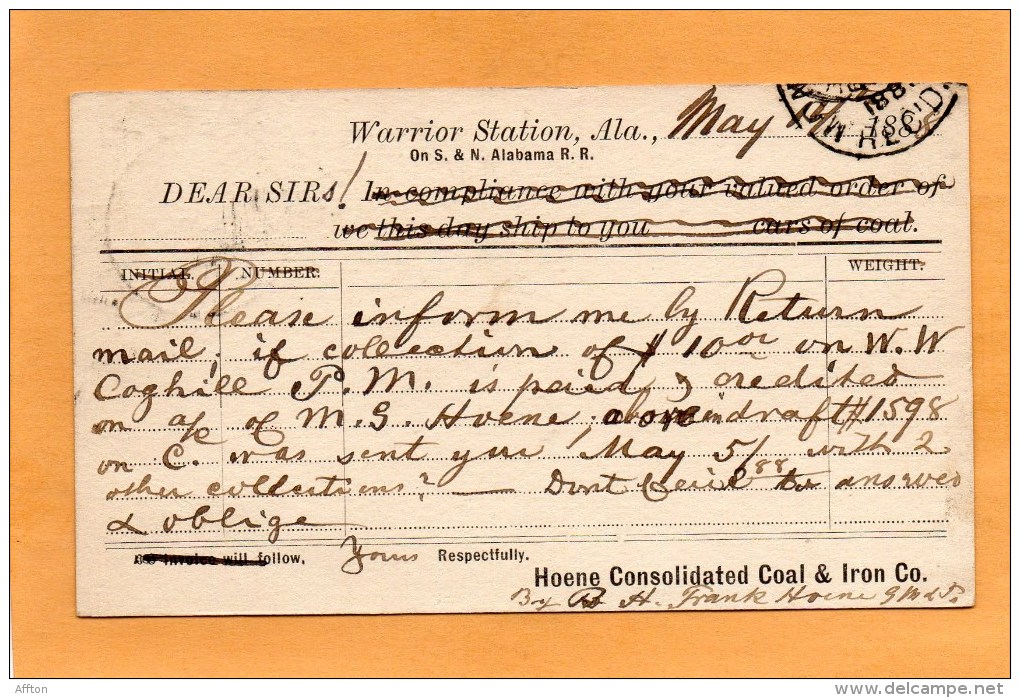 Warrior Station, Ala., May 188
On S. & N. Alabama R. R.
REC'D.
DEAR SIRs! In compliance with your valued order of
we this day ship to you cars of coal.
INITIAL. NUMBER. WEIGHT.
Please inform me by Return
mail, if collection of $ 10 00 on W. W
Coghill P. M. is paid & credited
on a/c of M. G. Hoene, above draft # 1598
on C. was sent you May 5/88 with 2
other collections? — Dont fail to answer
& oblige
invoice will follow. Yours Respectfully.
Hoene Consolidated Coal & Iron Co.
By H. Frank Hoene
Affton
delcampe.net